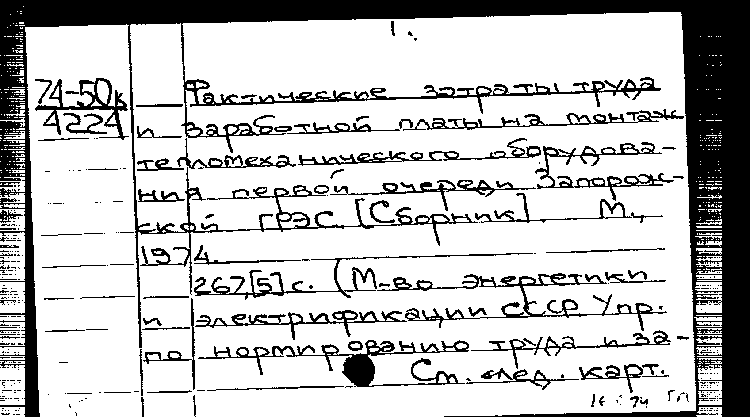 1.
74-50к
4224
Фактические затраты труда
и заработной платы на монтаж
тепломеханического оборудова-
ния первой очереди Запорож-
ской ГРЭС. [Сборник]. М.,
1974.
267,[5] с. (М-во энергетики
и электрификации СССР Упр.
по нормированию труда и за-
См. след. карт.